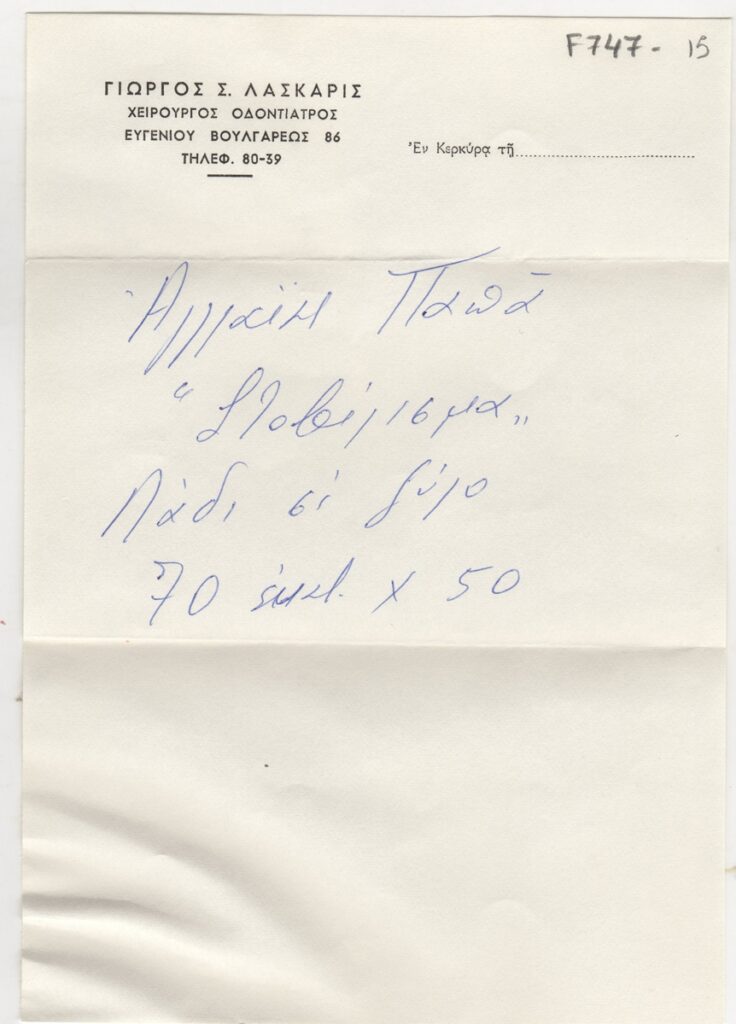 F747 - 15
ΓΙΩΡΓΟΣ Σ. ΛΑΣΚΑΡΙΣ
ΧΕΙΡΟΥΡΓΟΣ ΟΔΟΝΤΙΑΤΡΟΣ
ΕΥΓΕΝΙΟΥ ΒΟΥΛΓΑΡΕΩΣ 86
ΤΗΛΕΦ. 80-39
Ἐν Κερκύρᾳ τῇ
Ἀγλαΐα Παπᾶ
Λάδι σέ ξύλο
70 ἑκατ. x 50